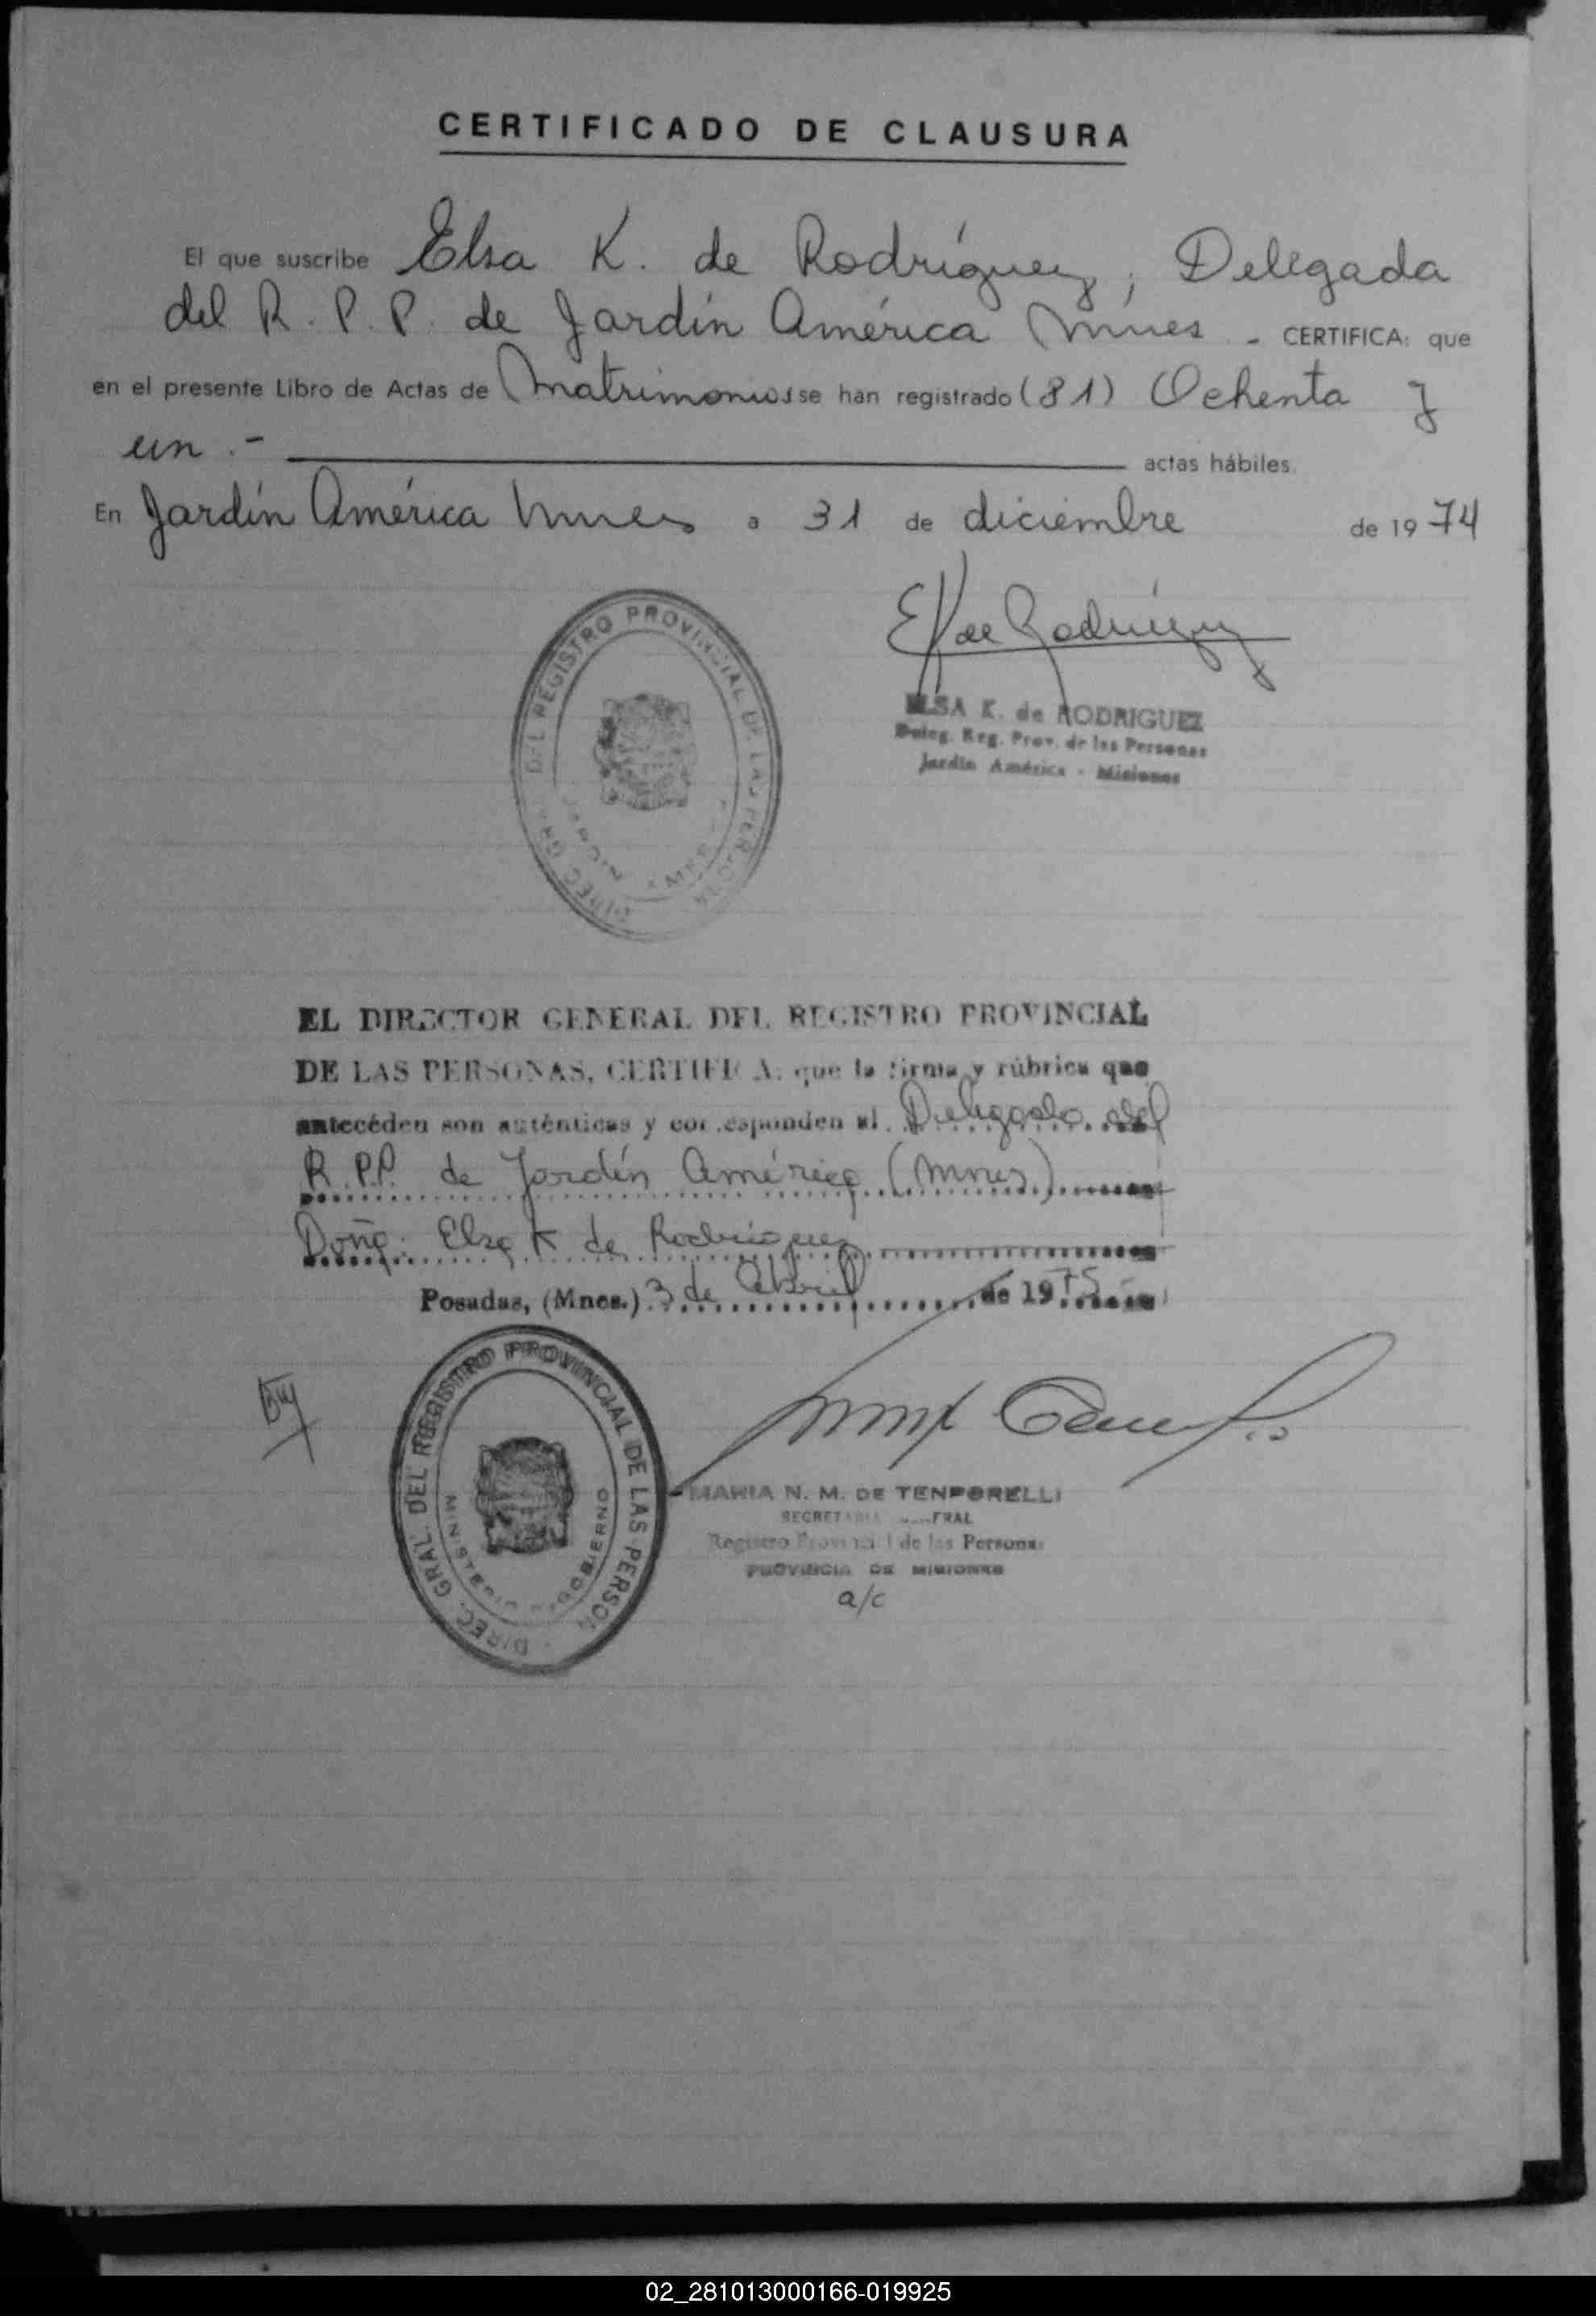 CERTIFICADO DE CLAUSURA
El que suscribe Elsa K. de Rodríguez, Delegada
del R. P. P. de Jardín América Mnes. - CERTIFICA: que
en el presente Libro de Actas de Matrimonios se han registrado (81) Ochenta y
un.- actas hábiles.
En Jardín América Mnes a 31 de diciembre de 1974
E K de Rodríguez
ELSA K. de RODRIGUEZ
Deleg. Reg. Prov. de las Personas
Jardín América - Misiones
DIREC. GRAL. DEL REGISTRO PROVINCIAL DE LAS PERSONAS
JARDIN AMERICA
EL DIRECTOR GENERAL DEL REGISTRO PROVINCIAL
DE LAS PERSONAS, CERTIFICA: que la firma y rúbrica que
antecéden son auténticas y corresponden al Delegado del
R.P.P. de Jardín América (Mnes)
Doña: Elsa K de Rodríguez
Posadas, (Mnes.) 3 de Abril de 1975
DIREC. GRAL. DEL REGISTRO PROVINCIAL DE LAS PERSON
MINISTERIO GOBIERNO
MARIA N. M. DE TENPORELLI
SECRETARIA GENERAL
Registro Provincial de las Personas
PROVINCIA DE MISIONES
a/c
02_281013000166-019925